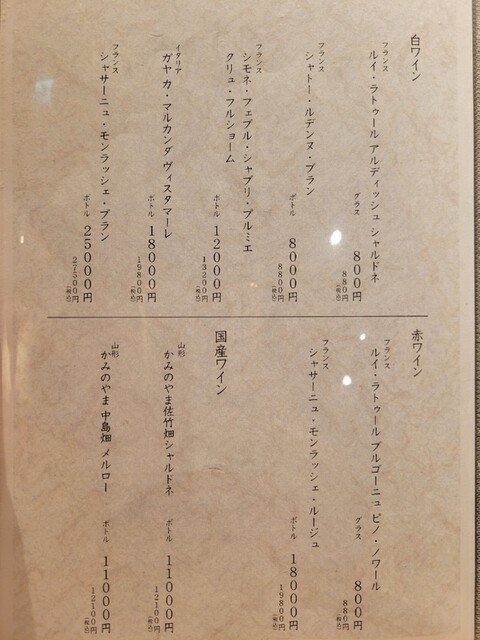 白ワイン
フランス
ルイ・ラトゥール アルディッシュ シャルドネ
グラス 800円
880円(税込)
フランス
シャトー・ルデンヌ・ブラン
ボトル 8000円
8800円(税込)
フランス
シモネ・フェブル・シャブリ・プルミエ
クリュ・フルショーム
ボトル 12000円
13200円(税込)
イタリア
ガヤ カ・マルカンダ ヴィスタマーレ
ボトル 18000円
19800円(税込)
フランス
シャサーニュ・モンラッシェ・ブラン
ボトル 25000円
27500円(税込)
赤ワイン
フランス
ルイ・ラトゥール ブルゴーニュ ピノ・ノワール
グラス 800円
880円(税込)
フランス
シャサーニュ・モンラッシェ・ルージュ
ボトル 18000円
19800円(税込)
国産ワイン
山形
かみのやま佐竹畑シャルドネ
ボトル 11000円
12100円(税込)
山形
かみのやま 中島畑 メルロー
ボトル 11000円
12100円(税込)